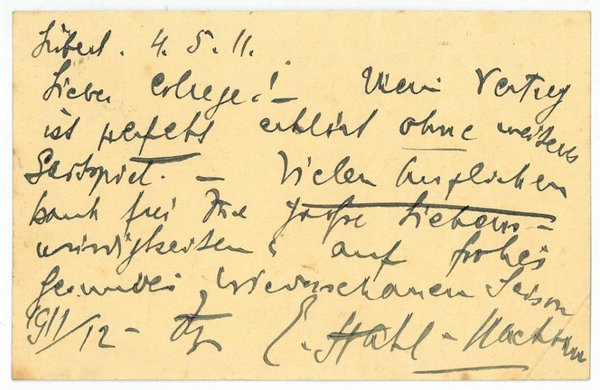 Lübeck. 4. 5. 11.
Lieber College! – Mein Vertrag
ist perfekt erklärt ohne weiteres
Gastspiel. – Vielen herzlichen
Dank für Ihre große Liebens-
würdigkeiten auf frohes
gesundes Wiederschauen Saison
1911/12 – E. Stahl-Nachbaur